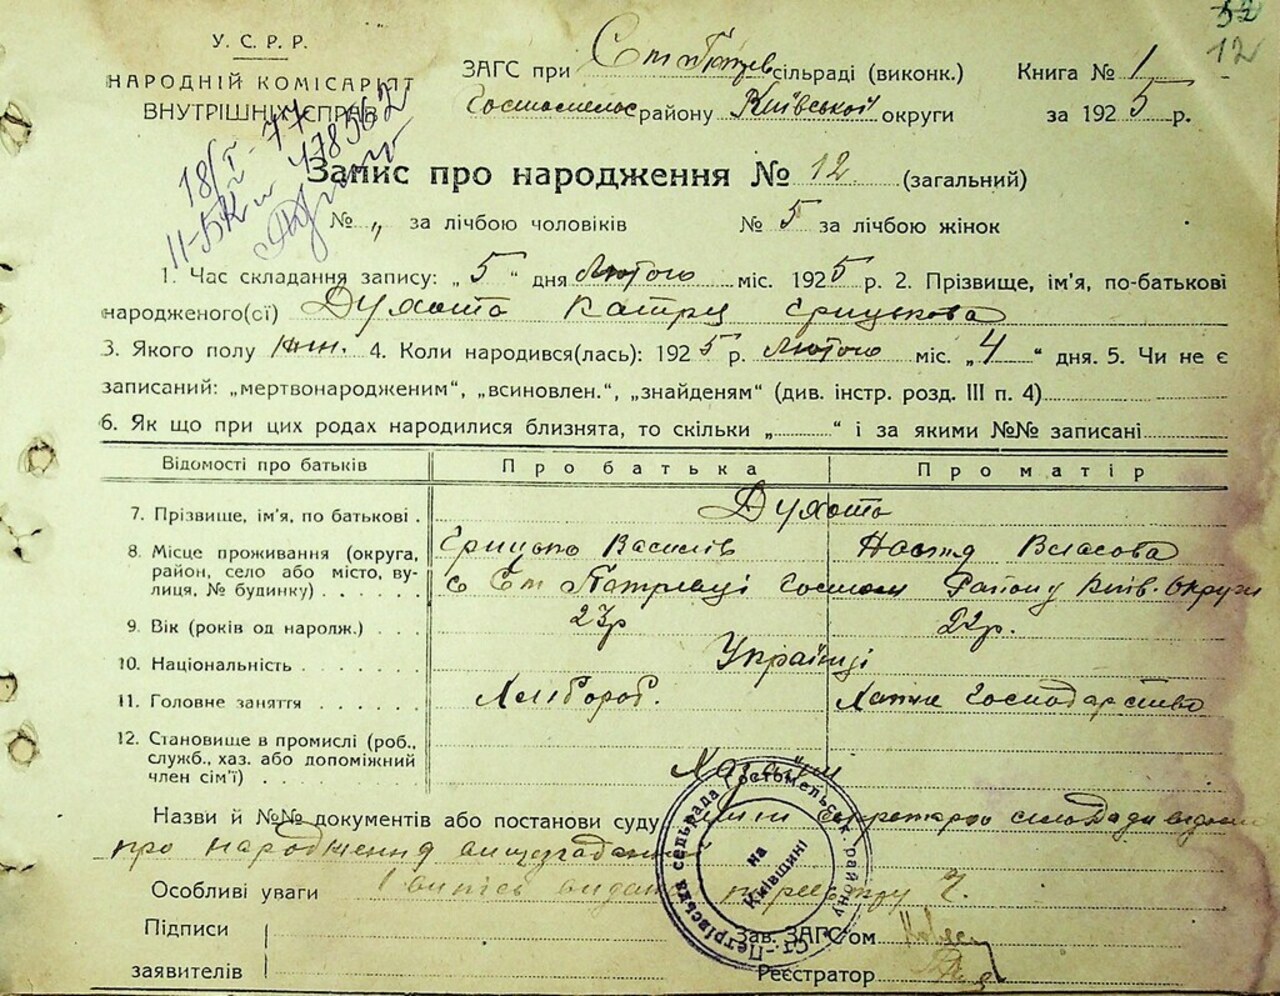 52
12
У. С. Р. Р.
НАРОДНІЙ КОМІСАРІЯТ
ВНУТРІШНІХ СПРАВ
18/I-77
II-БК 478562
ЗАГС при Ст Петрів сільраді (виконк.) Книга № 1
Гостомелос району Київської округи за 1925 р.
Запис про народження № 12 (загальний)
№ „ за лічбою чоловіків № 5 за лічбою жінок
1. Час складання запису: „5“ дня Лютого міс. 1925 р. 2. Прізвище, ім'я, по-батькові
народженого(сі) Духота Катря Грицькова
3. Якого полу жін. 4. Коли народився(лась): 1925 р. лютого міс. „4“ дня. 5. Чи не є
записаний: „мертвонародженим“, „всиновлен.“, „знайденям“ (див. інстр. розд. III п. 4)
6. Як що при цих родах народилися близнята, то скільки „ “ і за якими №№ записані
Відомості про батьків Про батька Про матір
7. Прізвище, ім'я, по батькові . Духота
Грицько Василів Настя Власова
8. Місце проживання (округа, район, село або місто, вулиця, № будинку) с Ст Петрівці Гостом Району Київ. Округи
9. Вік (років од наролж.) 23р 22р.
10. Національність Українці
11. Головне заняття Хлібороб. Хатнє Господарство
12. Становище в промислі (роб., служб., хаз. або допоміжний член сім'ї) Хазяїни
Назви й №№ документів або постанови суду секретарю сільради
про народження вищезгаданої
Особливі уваги 1 випись видана
Підписи
заявителів
Зав. ЗАГС'ом
Реєстратор
Ст.-Петрівська сельрада Гостомельськ. району
на Київщині